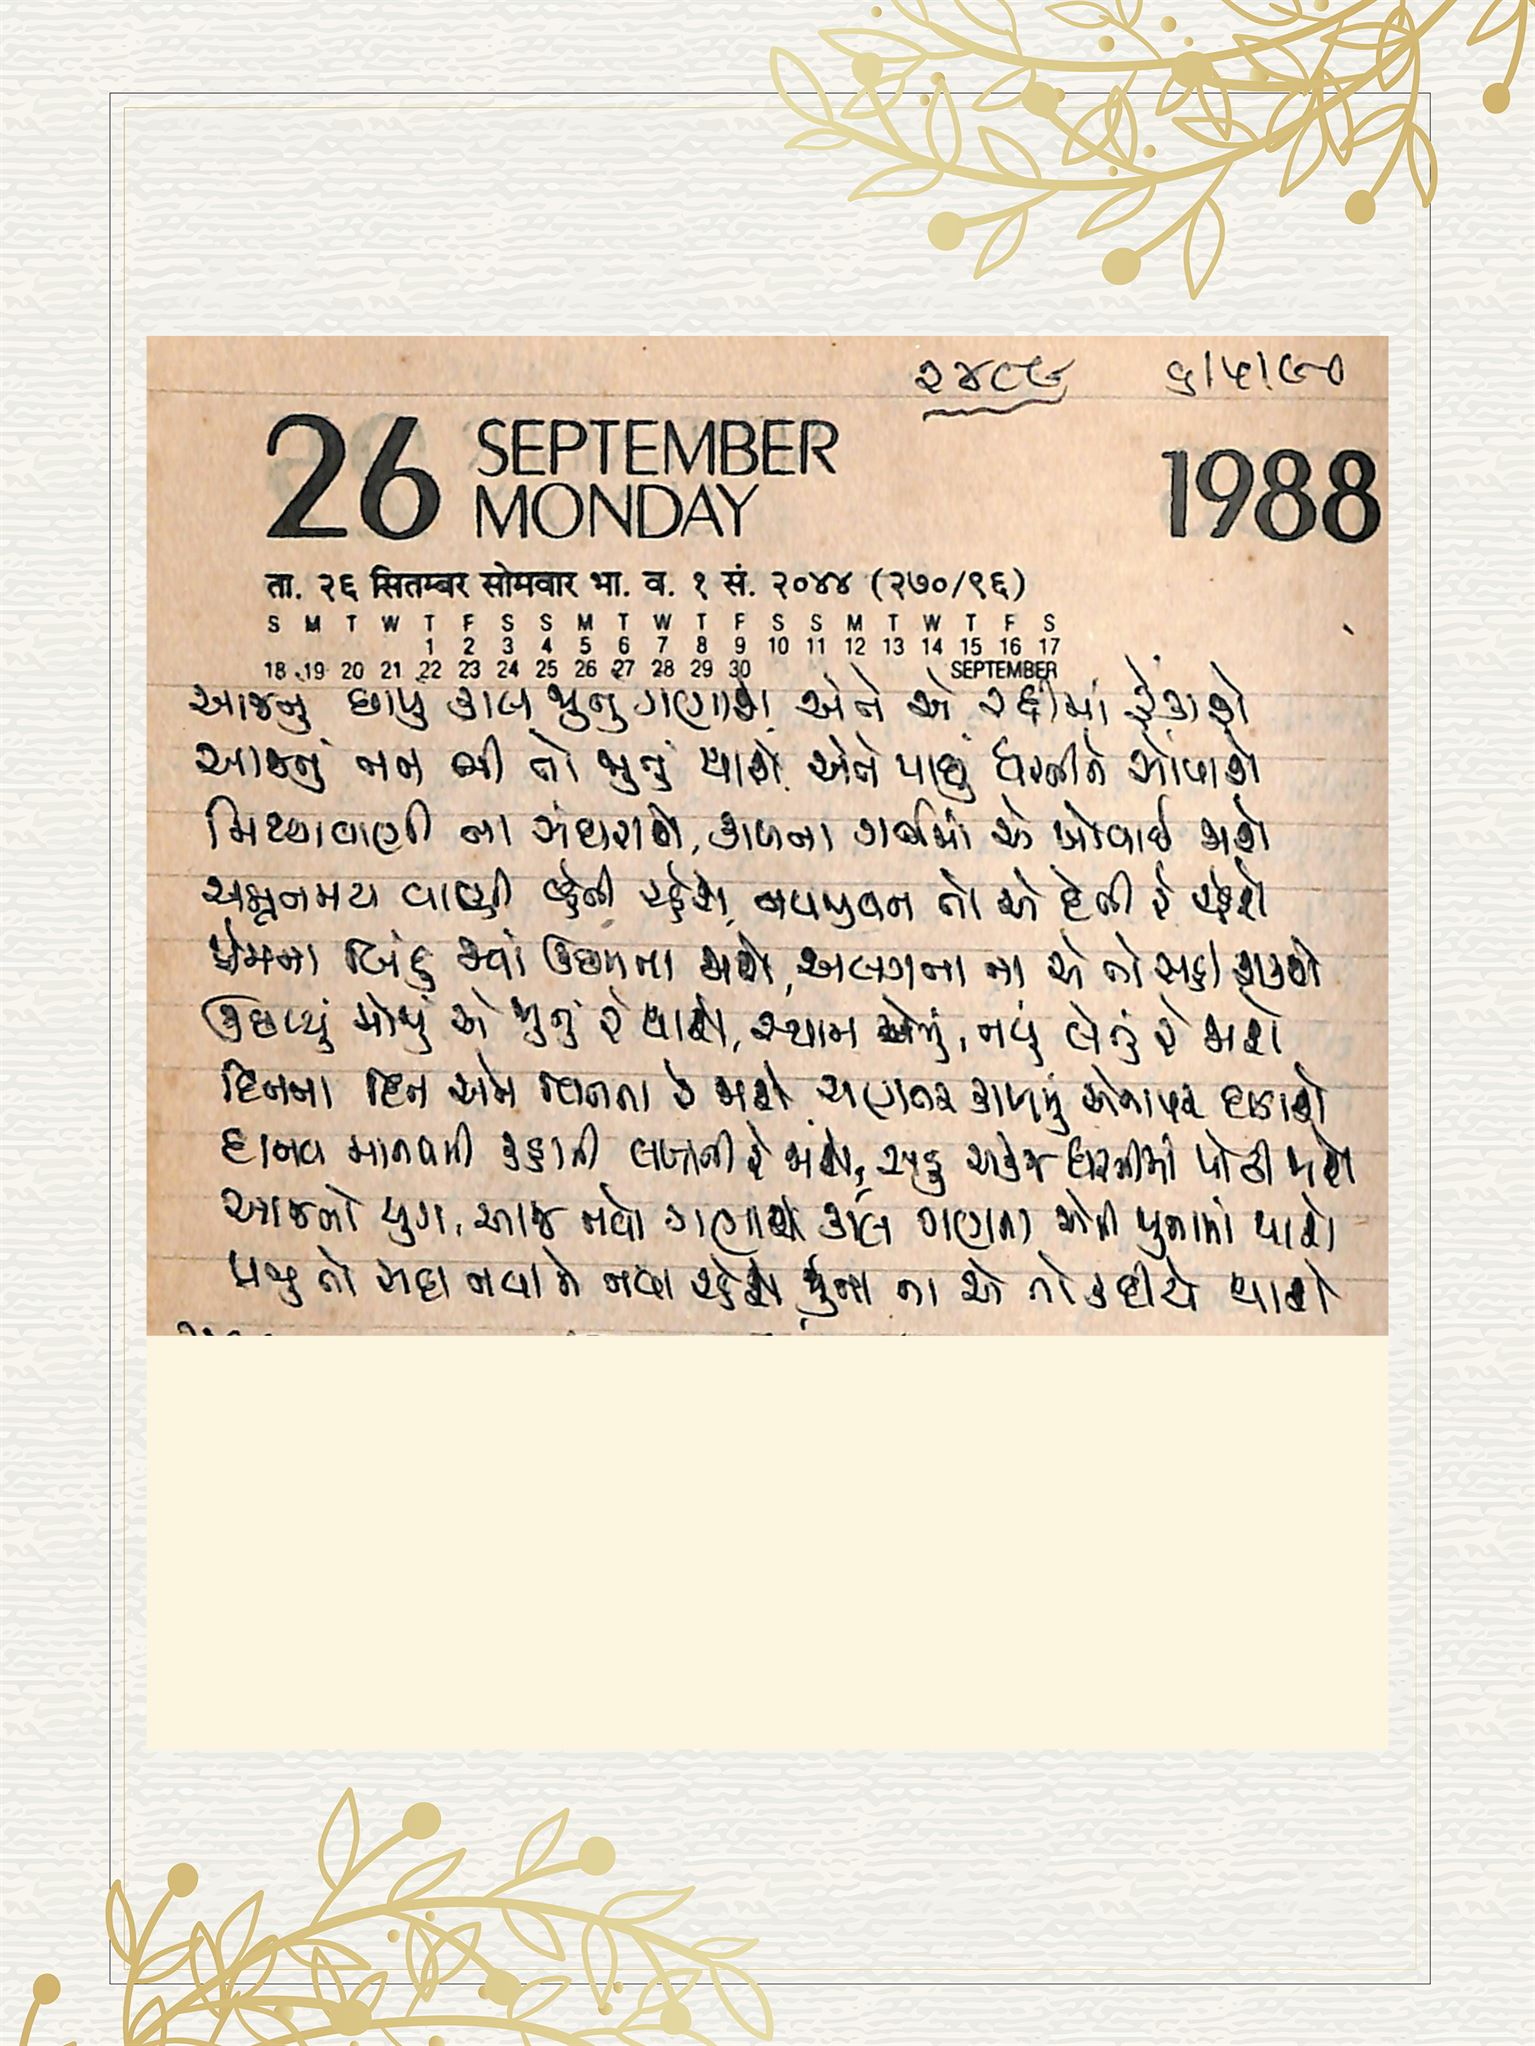 ૨૪૮૬ ૬/૫/૯૦
26 SEPTEMBER
MONDAY
1988
ता. २६ सितम्बर सोमवार भा. व. १ सं. २०४४ (२७०/९६)
S M T W T F S S M T W T F S S M T W T F S
1 2 3 4 5 6 7 8 9 10 11 12 13 14 15 16 17
18 19 20 21 22 23 24 25 26 27 28 29 30 SEPTEMBER
આજનું છાપું કાલ જુનુ ગણાશે એને એ રદ્દીમાં ફેંકાશે
આજનું તન બી તો જુનું થાશે એને પાછું ધરતીને સોંપાશે
મિથ્યાવાણી ના સંઘરાશે, કાળના ગર્ભમાં એ ખોવાઈ જાશે
અમૃતમય વાણી વ્હેતી રહેશે, નવજીવન તો એ દેતી રે રહેશે
પ્રેમના બિંદુ જ્યાં ઉછળતા જાશે, અલગતા ના એ તો સદા
ઉછળ્યું મોજું એ જુનું રે થાશે, સ્થાન એનું, નવું લેતું રે જાશે
દિનના દિન એમ વિતતા રે જાશે ચણતર કાળનું એના પર
દાનવ માનવની કહાની લખાતી રે જાશે, સહુ ધરતીમાં પોઢી જાશે
આજનો યુગ, આજ નવો ગણાશે કાલ ગણના એની જુનામાં થાશે
પ્રભુ તો સદા નવા ને નવા રહેશે જુના ના એ તો કદીયે થાશે